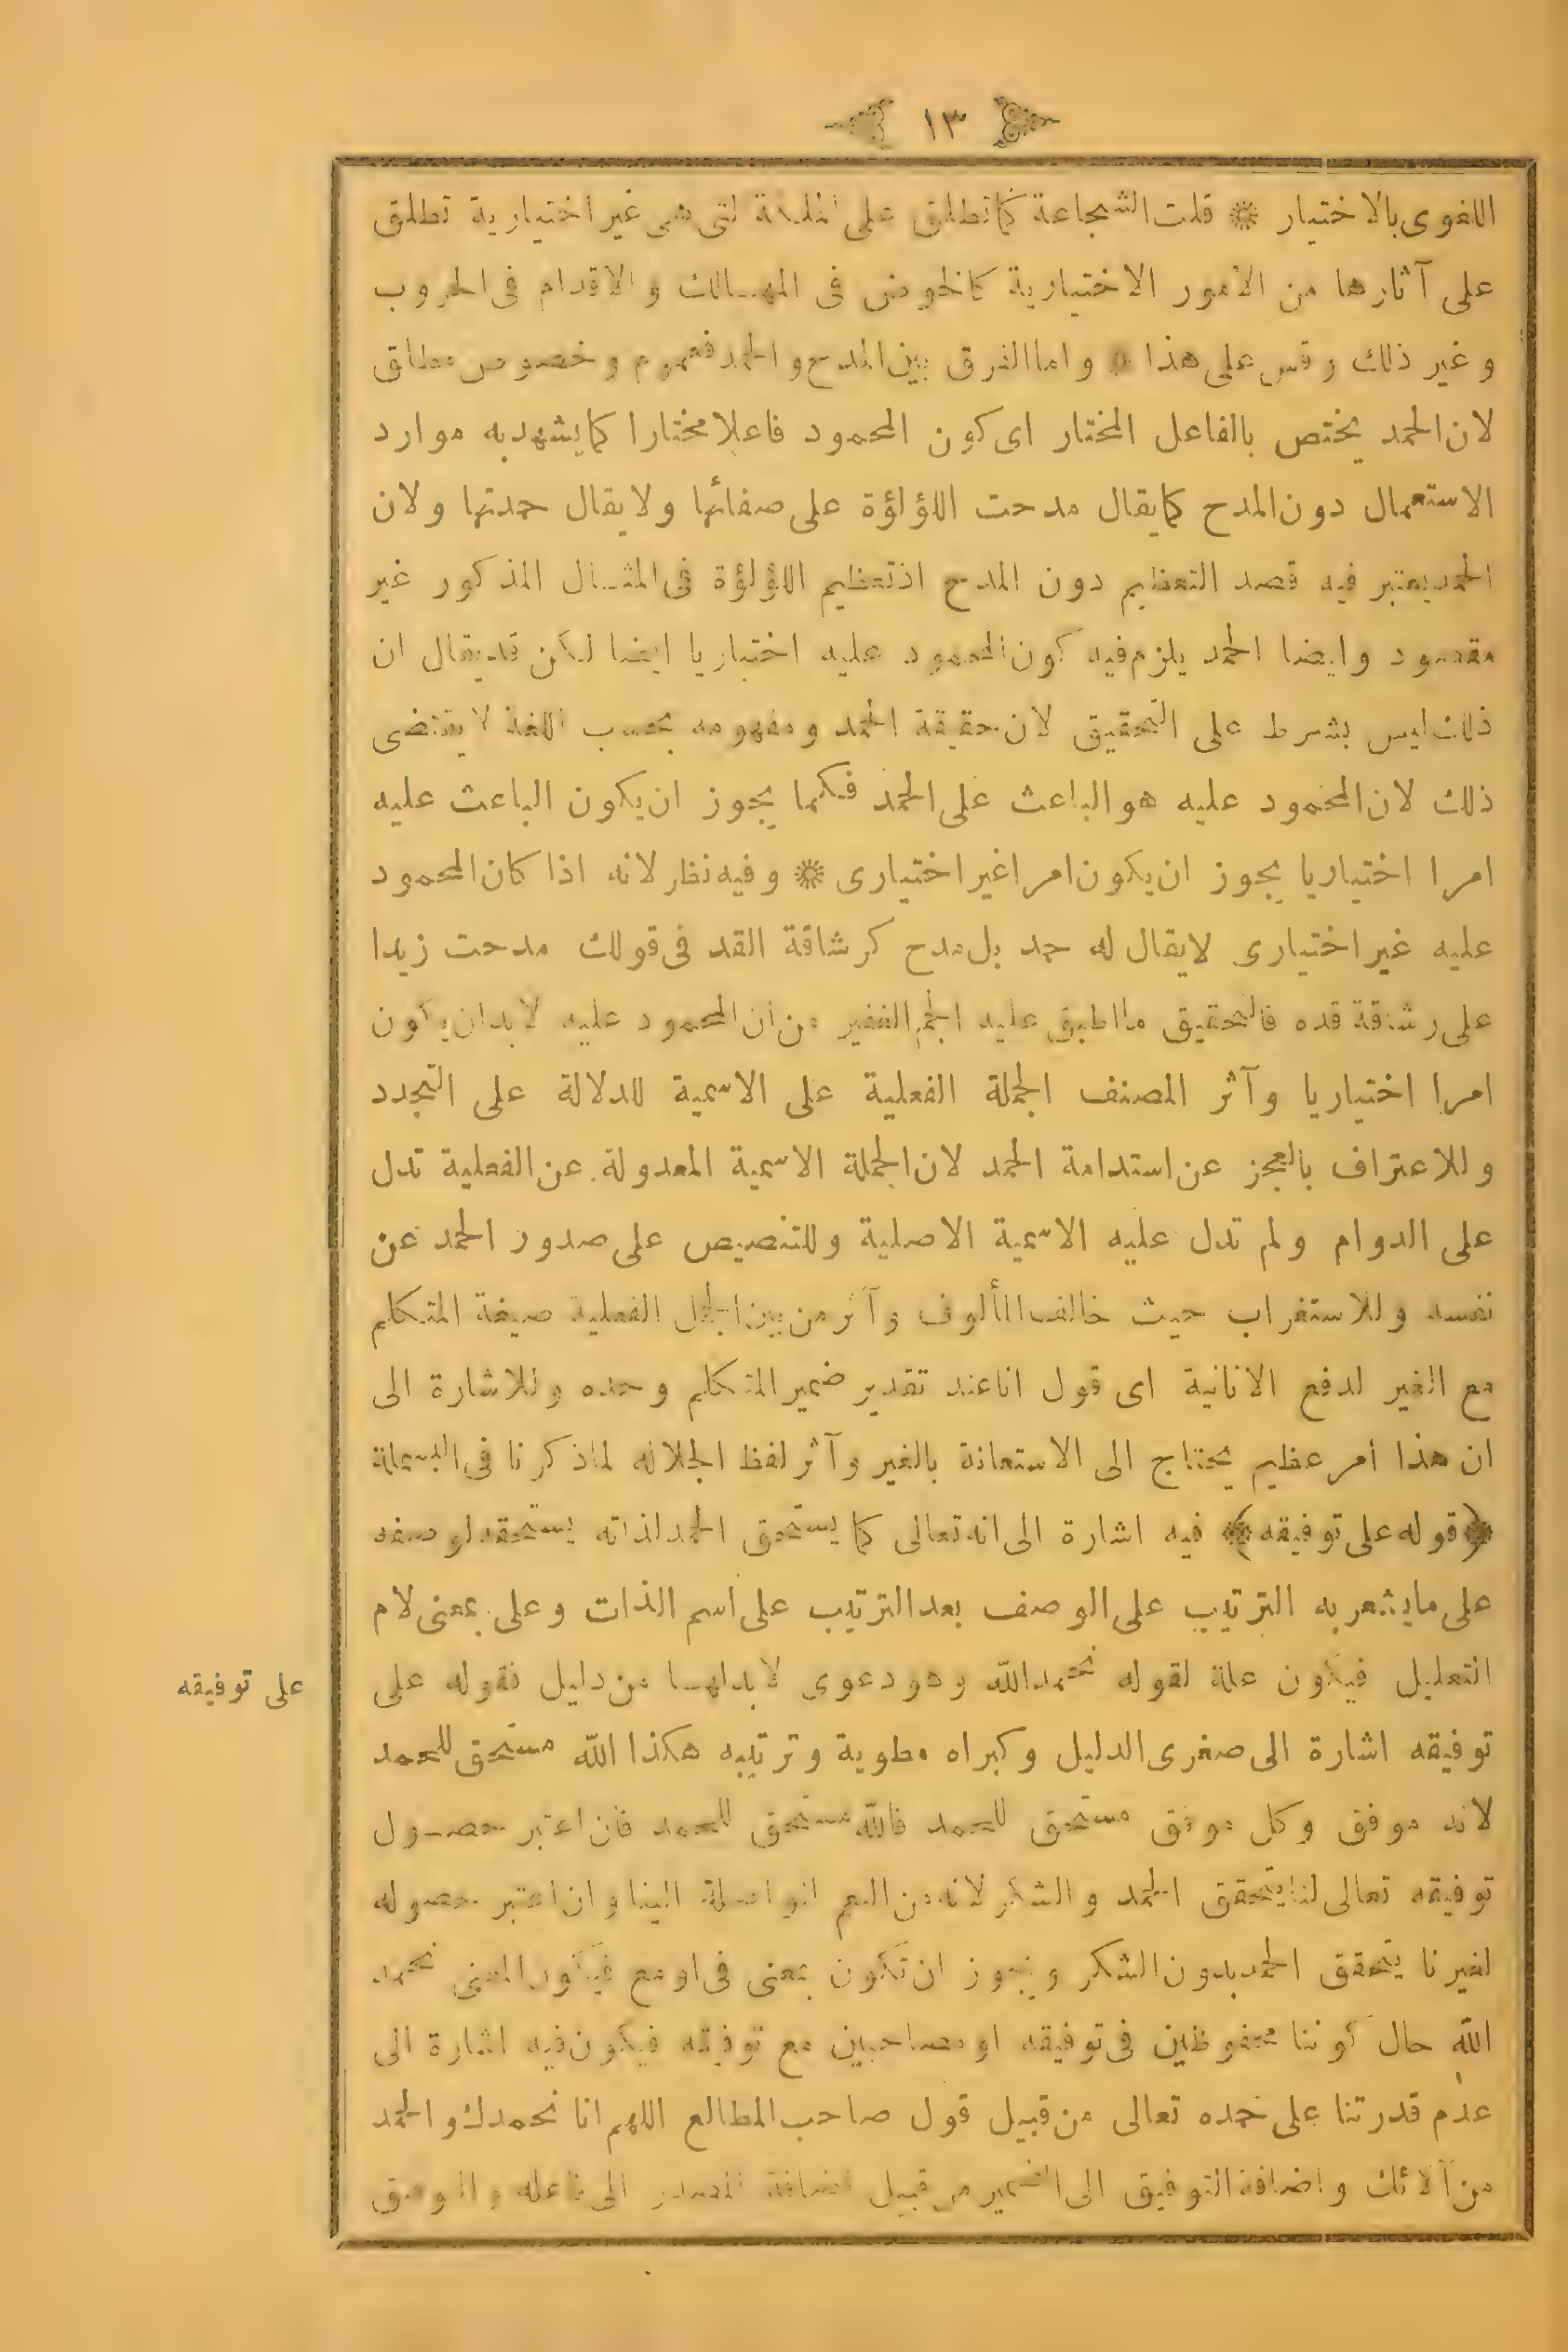 ١٣
اللغوى بالاختيار ۞ قلت الشجاعة كما تطلق على الملكة التى هى غير اختيارية تطلق
على آثارها من الامور الاختيارية كالخوض فى المهالك والاقدام فى الحروب
وغير ذلك وقس على هذا ۞ واما الفرق بين المدح والحمد فعموم وخصوص مطلق
لان الحمد يختص بالفاعل المختار اى كون المحمود فاعلا مختارا كما يشهد به موارد
الاستعمال دون المدح كما يقال مدحت اللؤلؤة على صفائها ولا يقال حمدتها ولان
الحمد يعتبر فيه قصد التعظيم دون المدح اذ تعظيم اللؤلؤة فى المثال المذكور غير
مقصود وايضا الحمد يلزم فيه كون المحمود عليه اختياريا ايضا لكن قد يقال ان
ذلك ليس بشرط على التحقيق لان حقيقة الحمد ومفهومه بحسب اللغة لا يقتضى
ذلك لان المحمود عليه هو الباعث على الحمد فكما يجوز ان يكون الباعث عليه
امرا اختياريا يجوز ان يكون امرا غير اختيارى ۞ وفيه نظر لانه اذا كان المحمود
عليه غير اختيارى لا يقال له حمد بل مدح كرشاقة القد فى قولك مدحت زيدا
على رشاقة قده فالتحقيق ما اطبق عليه الجم الغفير من ان المحمود عليه لا بد ان يكون
امرا اختياريا وآثر المصنف الجملة الفعلية على الاسمية للدلالة على التجدد
وللاعتراف بالعجز عن استدامة الحمد لان الجملة الاسمية المعدولة عن الفعلية تدل
على الدوام ولم تدل عليه الاسمية الاصلية وللتنصيص على صدور الحمد عن
نفسه وللاستغراب حيث خالف المألوف وآثر من بين الجمل الفعلية صيغة المتكلم
مع الغير لدفع الانانية اى قول انا عند تقدير ضمير المتكلم وحده وللاشارة الى
ان هذا امر عظيم يحتاج الى الاستعانة بالغير وآثر لفظ الجلاله لما ذكرنا فى البسملة
﴿قوله على توفيقه﴾ فيه اشارة الى انه تعالى كما يستحق الحمد لذاته يستحقه لوصفه
على ما يشعر به الترتيب على الوصف بعد الترتيب على اسم الذات وعلى بمعنى لام
التعليل فيكون علة لقوله نحمد الله وهو دعوى لا بد لها من دليل فقوله على
على توفيقه
توفيقه اشارة الى صغرى الدليل وكبراه مطوية وترتيبه هكذا الله مستحق للحمد
لانه موفق وكل موفق مستحق للحمد فالله مستحق للحمد فان اعتبر حصول
توفيقه تعالى لنا يتحقق الحمد والشكر لانه من النعم الواصلة الينا وان اعتبر حصوله
لغيرنا يتحقق الحمد بدون الشكر ويجوز ان تكون بمعنى فى او مع فيكون المعنى نحمد
الله حال كوننا محفوظين فى توفيقه او مصاحبين مع توفيقه فيكون فيه اشارة الى
عدم قدرتنا على حمده تعالى من قبيل قول صاحب المطالع اللهم انا نحمدك والحمد
من آلائك واضافة التوفيق الى الضمير من قبيل اضافة المصدر الى فاعله